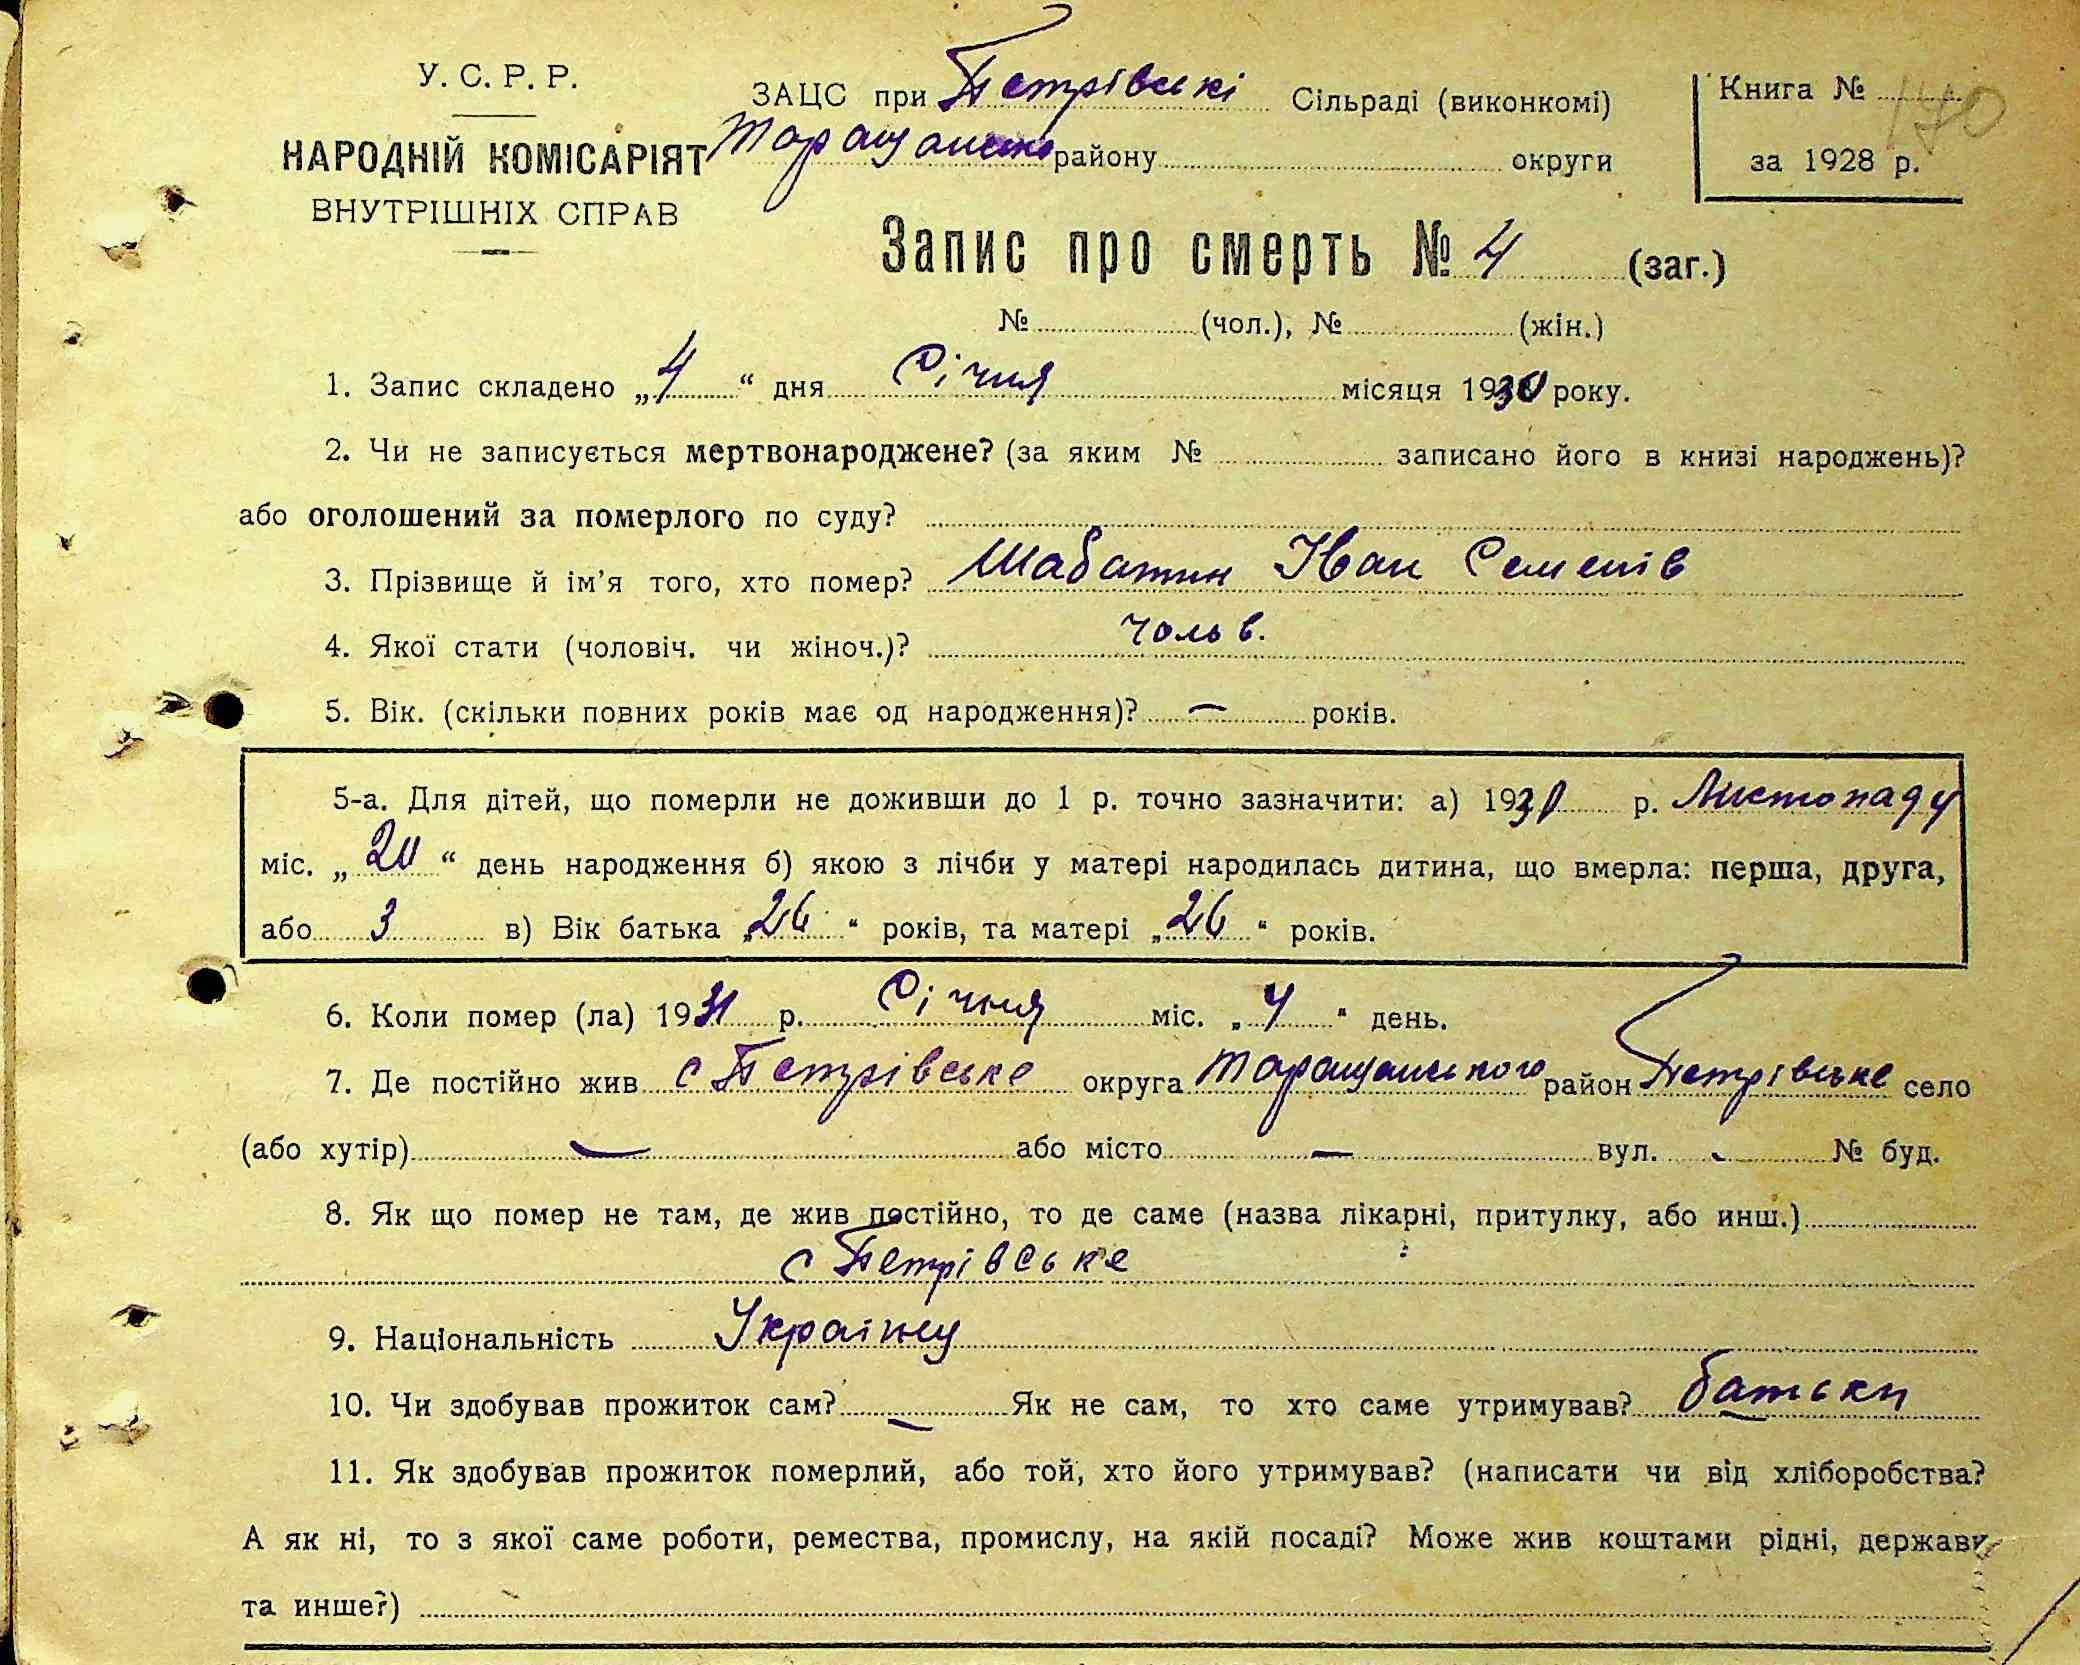 У. С. Р. Р.
НАРОДНІЙ КОМІСАРІЯТ
ВНУТРІШНІХ СПРАВ
ЗАЦС при Петрівські Сільраді (виконкомі)
району округи
Книга № 170
за 1928 р.
Запис про смерть № 4 (заг.)
№ (чол.), № (жін.)
1. Запис складено „4“ дня Січня місяця 1930 року.
2. Чи не записується мертвонароджене? (за яким № записано його в книзі народжень)?
або оголошений за померлого по суду?
3. Прізвище й ім’я того, хто помер? Шабатин Іван Семенів
4. Якої стати (чоловіч. чи жіноч.)? чольв.
5. Вік. (скільки повних років має од народження)? — років.
5-а. Для дітей, що померли не доживши до 1 р. точно зазначити: а) 19 р. Листопаду
міс. „20“ день народження б) якою з лічби у матері народилась дитина, що вмерла: перша, друга,
або 3 в) Вік батька „26“ років, та матері „26“ років.
6. Коли помер (ла) 1931 р. Січня міс. „4“ день.
7. Де постійно жив с Петрівське округа Таращанського район Петрівське село
(або хутір) — або місто — вул. - № буд.
8. Як що помер не там, де жив постійно, то де саме (назва лікарні, притулку, або инш.)
с Петрівське
9. Національність Українц
10. Чи здобував прожиток сам? — Як не сам, то хто саме утримував? батьки
11. Як здобував прожиток померлий, або той, хто його утримував? (написати чи від хліборобства?
А як ні, то з якої саме роботи, ремества, промислу, на якій посаді? Може жив коштами рідні, держави
та инше?)